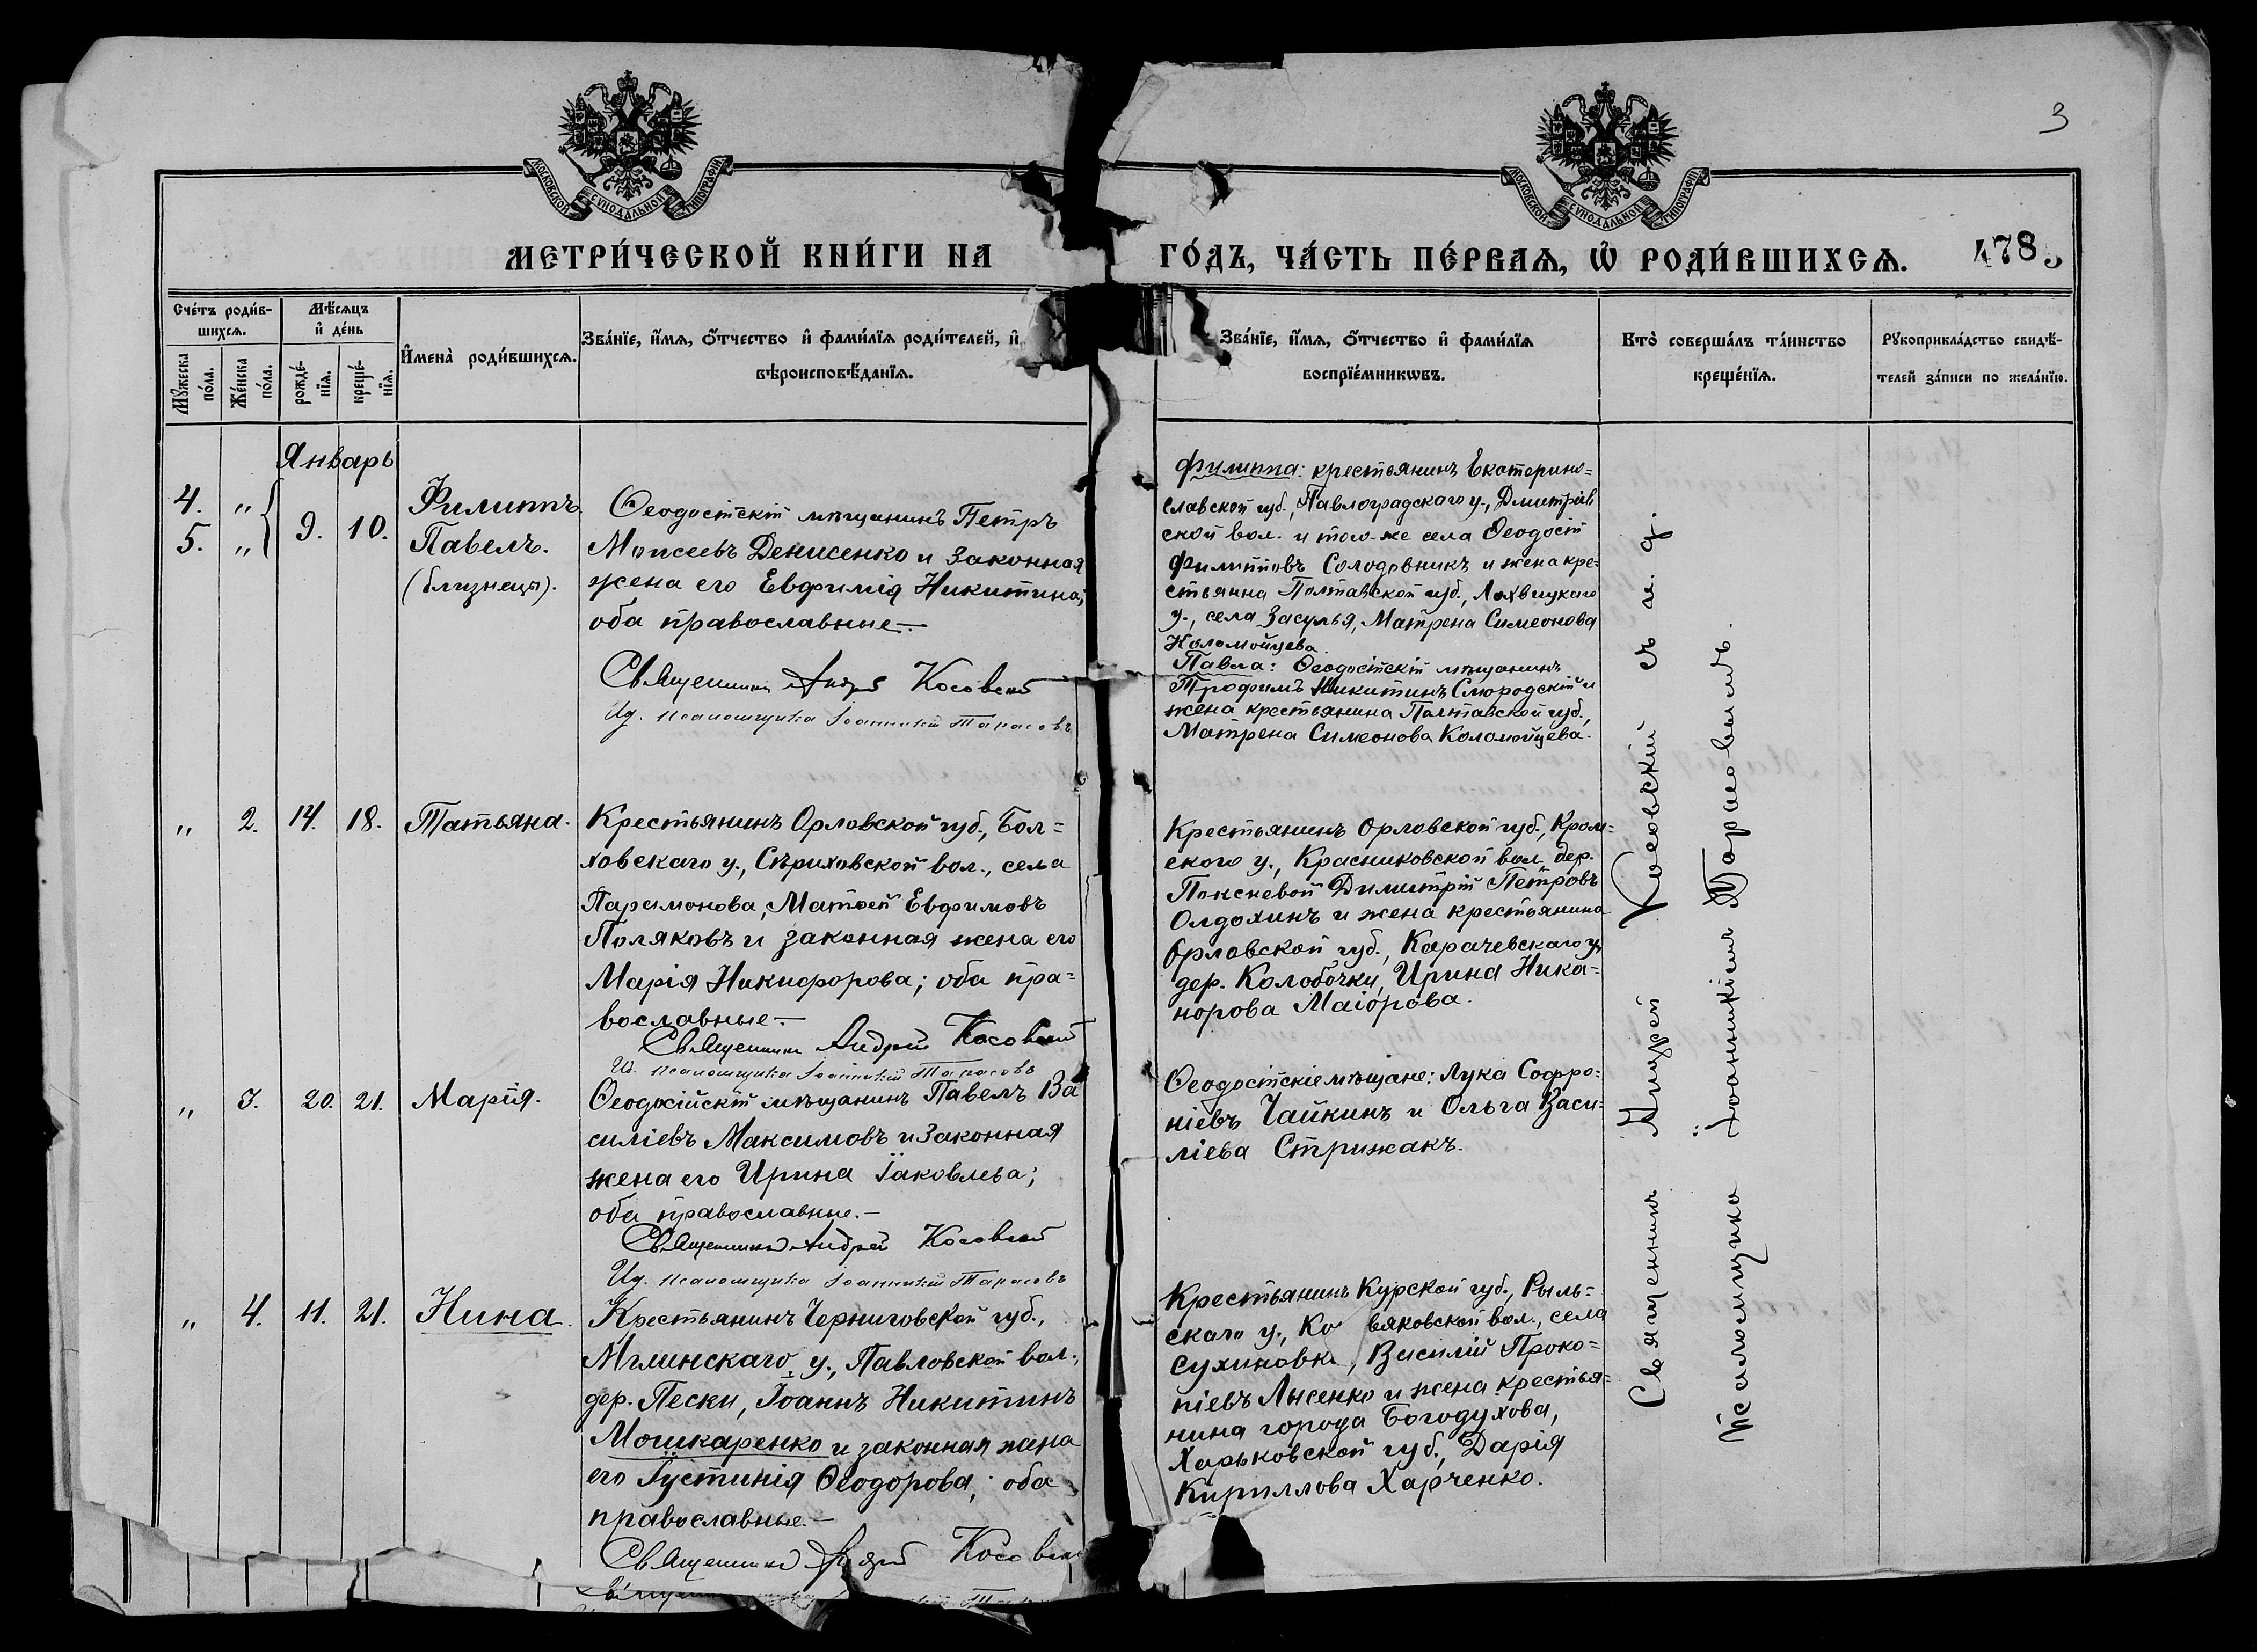 3
МОСКОВСКОЙ СѴНОДАЛЬНОЙ ТИПОГРАФІИ
МОСКОВСКОЙ СѴНОДАЛЬНОЙ ТИПОГРАФІИ
МЕТРИ́ЧЕСКОЙ КНИ́ГИ НА ГО́ДЪ, ЧА́СТЬ ПЕ́РВАѦ, Ѽ РОДИ́ВШИХСѦ. 478
Сче́тъ роди́в-
шихсѧ.
Мꙋ́жеска по́ла.
Же́нска по́ла.
Мѣ́сѧцъ
и҆ де́нь
рожде́-
нїѧ.
креще́-
нїѧ.
И҆мена̀ роди́вшихсѧ.
Зва́нїе, и҆́мѧ, ѻ҆́тчество и҆ фами́лїѧ роди́телей, и҆
вѣроисповѣ́данїѧ.
Зва́нїе, и҆́мѧ, ѻ҆́тчество и҆ фами́лїѧ
воспрїе́мникѡвъ.
Кто̀ соверша́лъ та́инство
креще́нїѧ.
Рꙋкоприкла́дство свидѣ́-
телей за́писи по жела́нїю.
Январь
4. "
5. "
9. 10.
Филиппъ.
Павелъ.
(близнецы).
Ѳеодосійскій мѣщанинъ Петръ
Моисеевъ Денисенко и законная
жена его Евфимія Никитина;
оба православные.—
Священникъ Андрей Косовский
Ид. псаломщика Іоанникій Тарасовъ
Филиппа: крестьянинъ Екатерино=
славской губ., Павлоградскаго у., Дмитріев
ской вол. и того-же села Ѳеодосій
Филипповъ Солодовникъ и жена кре-
стьянина Полтавской губ., Лохвицкаго
у., села Засулья, Матрена Симеонова
Коломойцева.
Павла: Ѳеодосійскій мѣщанинъ
Трофимъ Никитинъ Смородскій и
жена крестьянина Полтавской губ.,
Матрена Симеонова Коломойцева.
" 2. 14. 18. Татьяна.
Крестьянинъ Орловской губ., Бол=
ховскаго у., Сѣриховской вол., села
Парамонова, Матѳей Евфимовъ
Поляковъ и законная жена его
Марія Никифорова; оба пра=
вославные.—
Священникъ Андрей Косовский
Ид. псаломщика Іоанникій Тарасовъ
Крестьянинъ Орловской губ., Кром=
скаго у., Красниковской вол. дер.
Поксневой Димитрій Петровъ
Олдохинъ и жена крестьянина
Орловской губ., Карачевскаго у.
дер. Колобочки, Ирина Ника=
норова Маіорова.
" 3. 20. 21. Марія.
Ѳеодосійскій мѣщанинъ Павелъ Ва
силіевъ Максимовъ и законная
жена его Ирина Іаковлева;
оба православные.—
Священникъ Андрей Косовский
Ид. псаломщика Іоанникій Тарасовъ
Ѳеодосійскіе мѣщане: Лука Софро=
ніевъ Чайкинъ и Ольга Васи=
ліева Стрижакъ.
" 4. 11. 21. Нина.
Крестьянинъ Черниговской губ.,
Мглинскаго у., Павловской вол.,
дер. Пески, Іоаннъ Никитинъ
Мошкаренко и законная жена
его Іустинія Ѳеодорова; оба
православные.—
Священникъ Андрей Косовский
Крестьянинъ Курской губ., Рыль=
скаго у., Ко вяковской вол., села
Сухиновк , Василій Проко=
піевъ Лысенко и жена крестья=
нина города Богодухова,
Харьковской губ., Дарія
Кириллова Харченко.
Священникъ Андрей Косовскій съ и. д.
Псаломщика Іоанникіемъ Тарасовымъ.